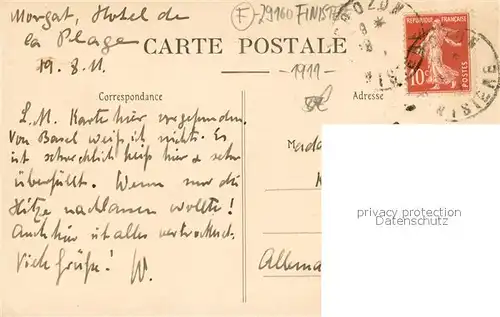 Morgat, Hotel de
la Plage
19.8.11.
F-29160 FINIST
CARTE POSTALE
-1911-
REPUBLIQUE FRANÇAISE
10c
POSTES
CROZON
FINISTERE
Correspondance
Adresse
L. M. Karte hier vorgefunden.
Von Basel weiß ich nichts. Es
ist schrecklich heiß hier & sehr
überfüllt. Wenn nur die
Hitze nachlassen wollte!
Auch hier ist alles vertrocknet.
Viele Grüße! W.
Mada
Allema
privacy protection
Datenschutz